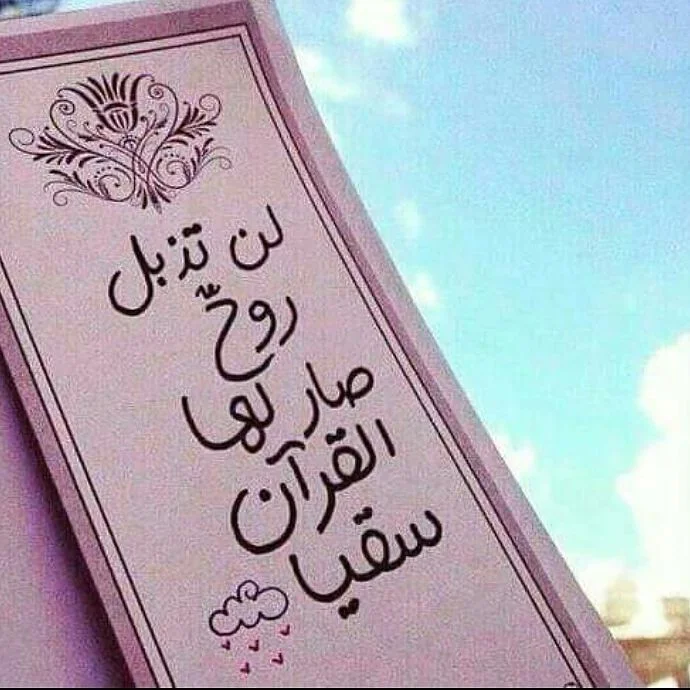 لن تذبل
روحٌ
صار لها
القرآن
سقيا